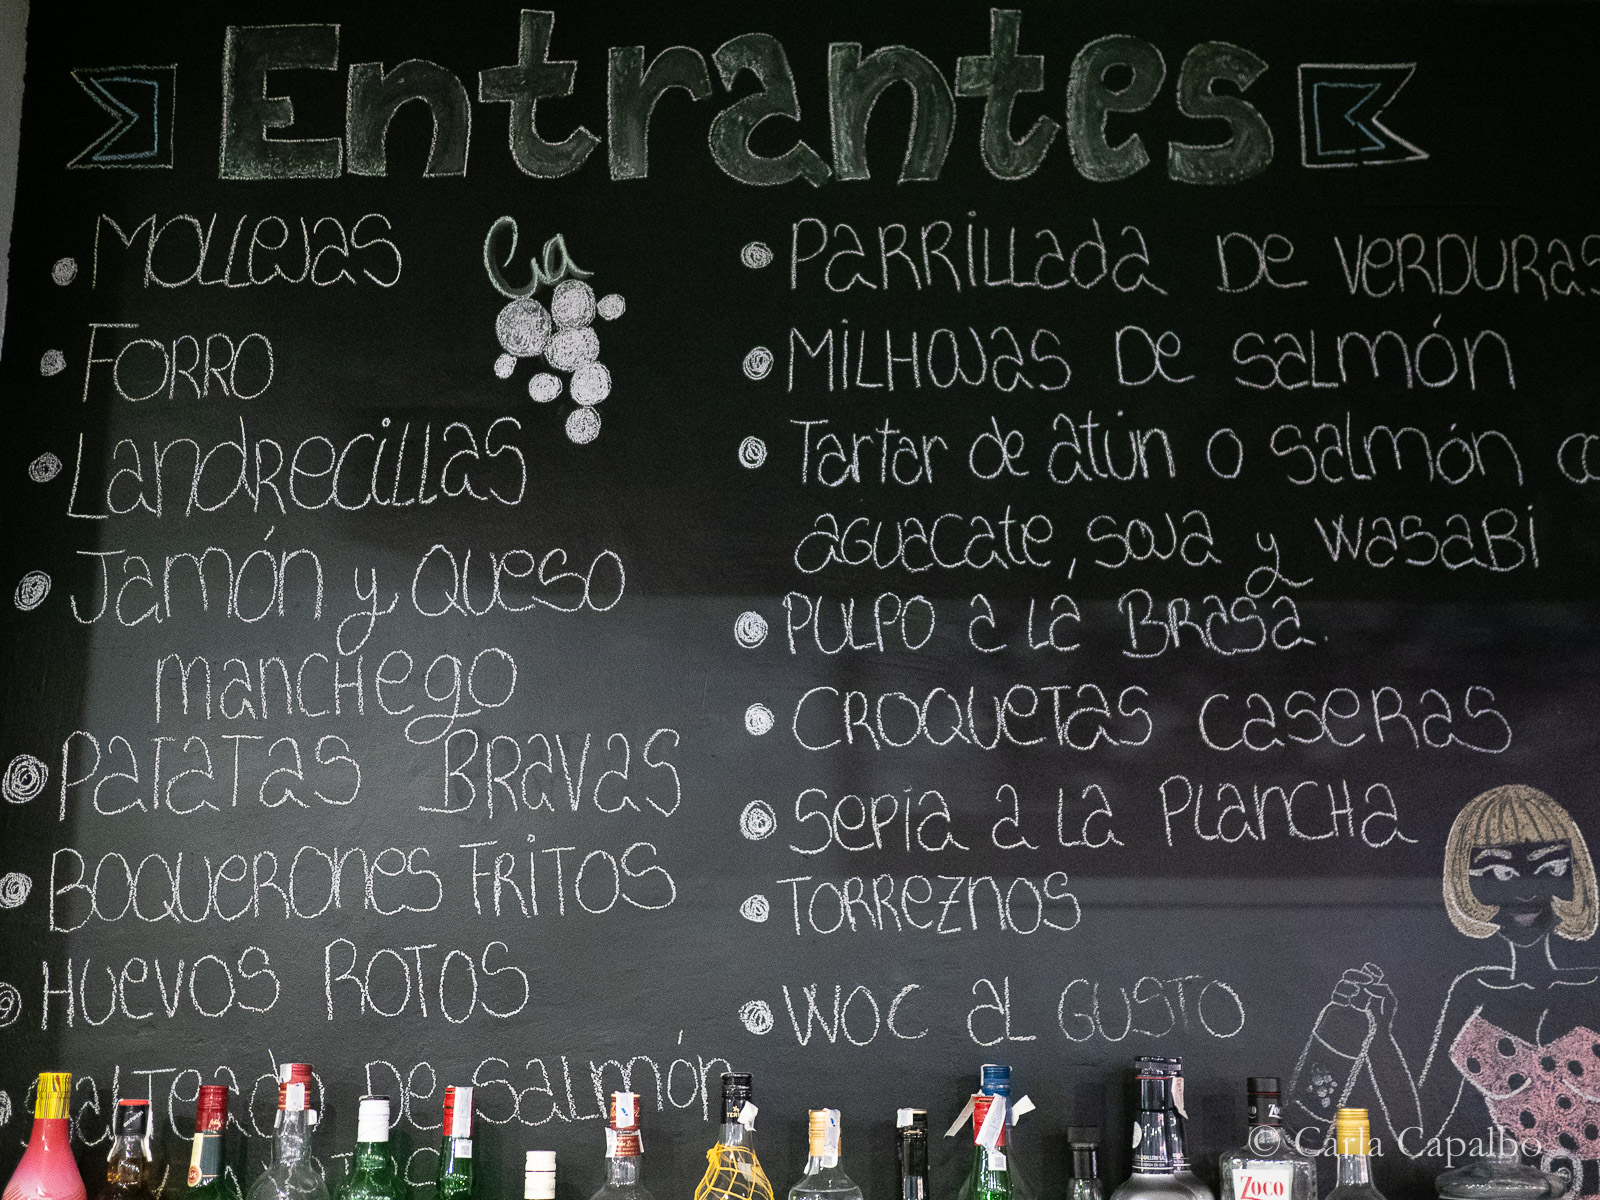 Entrantes
MOLLEJAS
FORRO
LANDRECILLAS
JAMÓN Y QUESO
MANCHEGO
PATATAS BRAVAS
BOQUERONES FRITOS
HUEVOS ROTOS
SALTEADO DE SALMÓN
PARRILLADA DE VERDURAS
MILHOJAS DE SALMÓN
Tartar de atún o salmón
aguacate, soja y wasabi
PULPO A LA BRASA.
CROQUETAS CASERAS
SEPIA A LA PLANCHA
TORREZNOS
WOC AL GUSTO
ZOCO
© Carla Capalbo